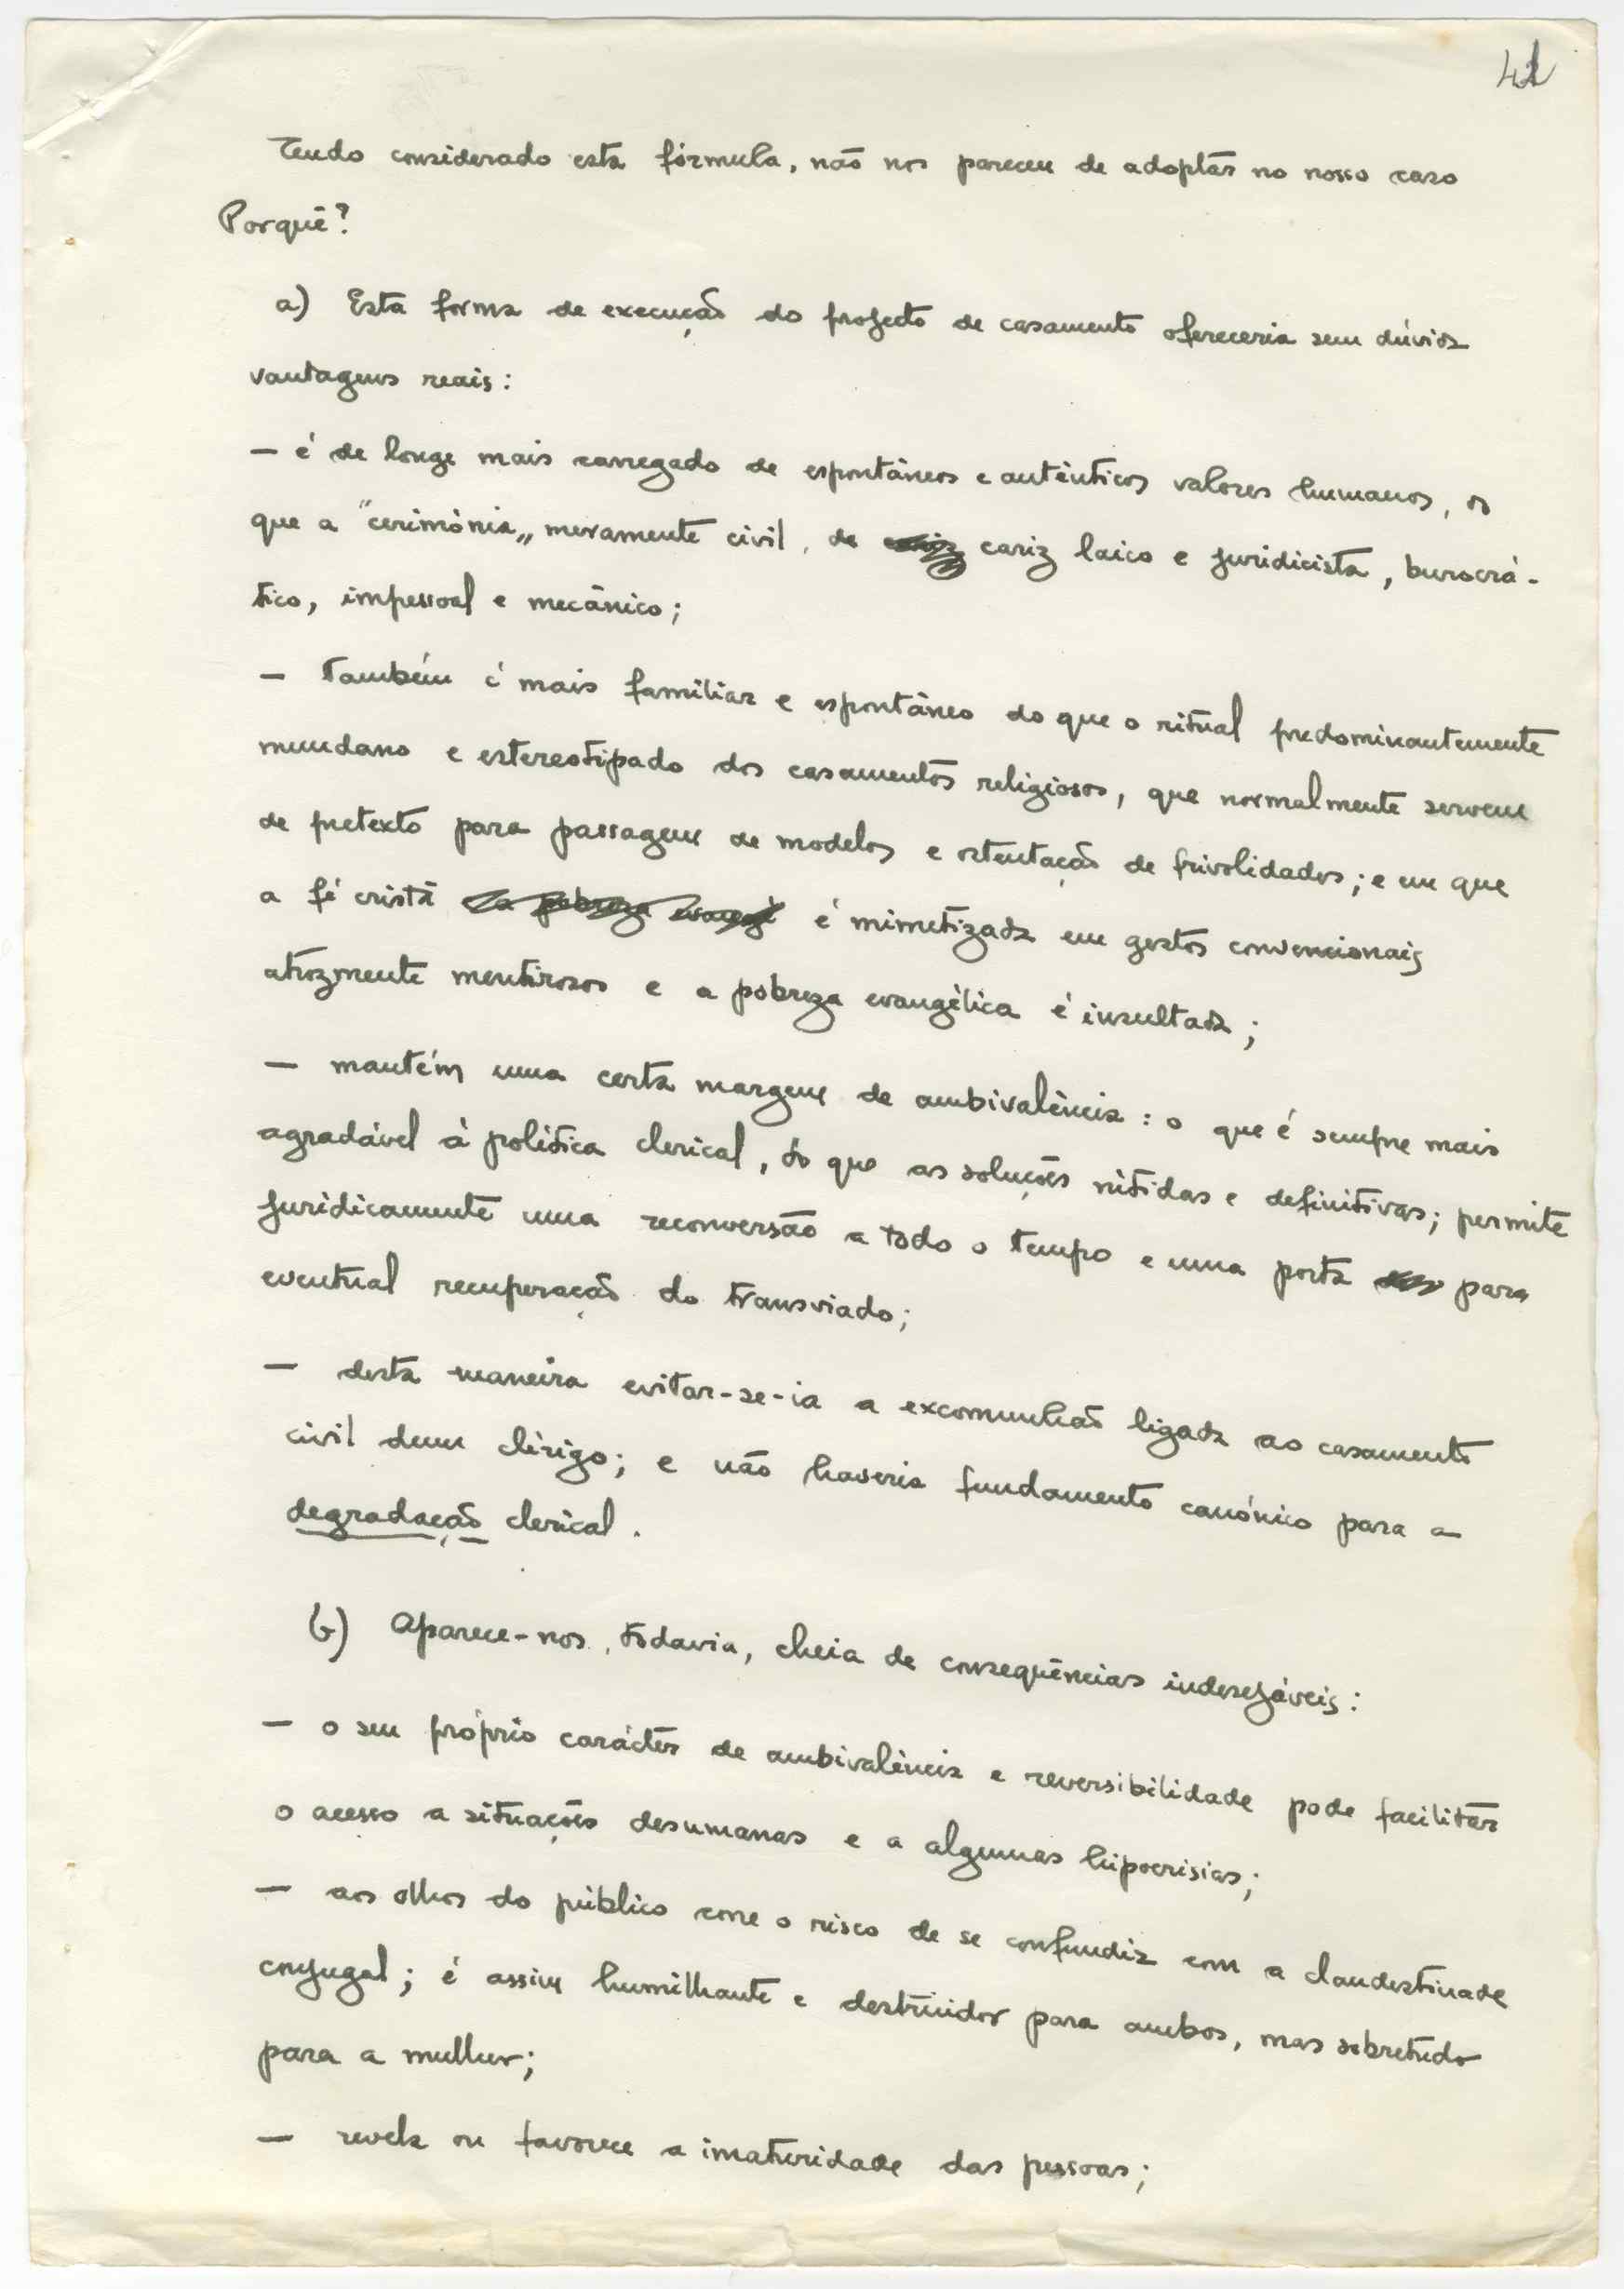 Tendo considerado esta fórmula, não nos pareceu de adoptar no nosso caso
Porquê?
a) Esta forma de execução do projecto de casamento ofereceria sem dúvida
vantagens reais:
— é de longe mais carregado de espontâneos e autênticos valores humanos, do
que a "cerimónia„ meramente civil, de cariz laico e juridicista, burocrá-
tico, impessoal e mecânico;
— também é mais familiar e espontâneo do que o ritual predominantemente
mundano e estereotipado dos casamentos religiosos, que normalmente servem
de pretexto para passagem de modelos e ostentação de frivolidades; e em que
a fé cristã é mimetizada em gestos convencionais
atrozmente mentirosos e a pobreza evangélica é insultada;
— mantém uma certa margem de ambivalência: o que é sempre mais
agradável à política clerical, do que as soluções nítidas e definitivas; permite
juridicamente uma reconversão a todo o tempo e uma porta para
eventual recuperação do transviado;
— desta maneira evitar-se-ia a excomunhão ligada ao casamento
civil dum clérigo; e não haveria fundamento canónico para a
degradação clerical.
b) Aparece-nos, todavia, cheia de consequências indesejáveis:
— o seu próprio carácter de ambivalência e reversibilidade pode facilitar
o acesso a situações desumanas e a algumas hipocrisias;
— aos olhos do público corre o risco de se confundir com a clandestinade
conjugal; é assim humilhante e destruidor para ambos, mas sobretudo
para a mulher;
— revela ou favorece a imaturidade das pessoas;